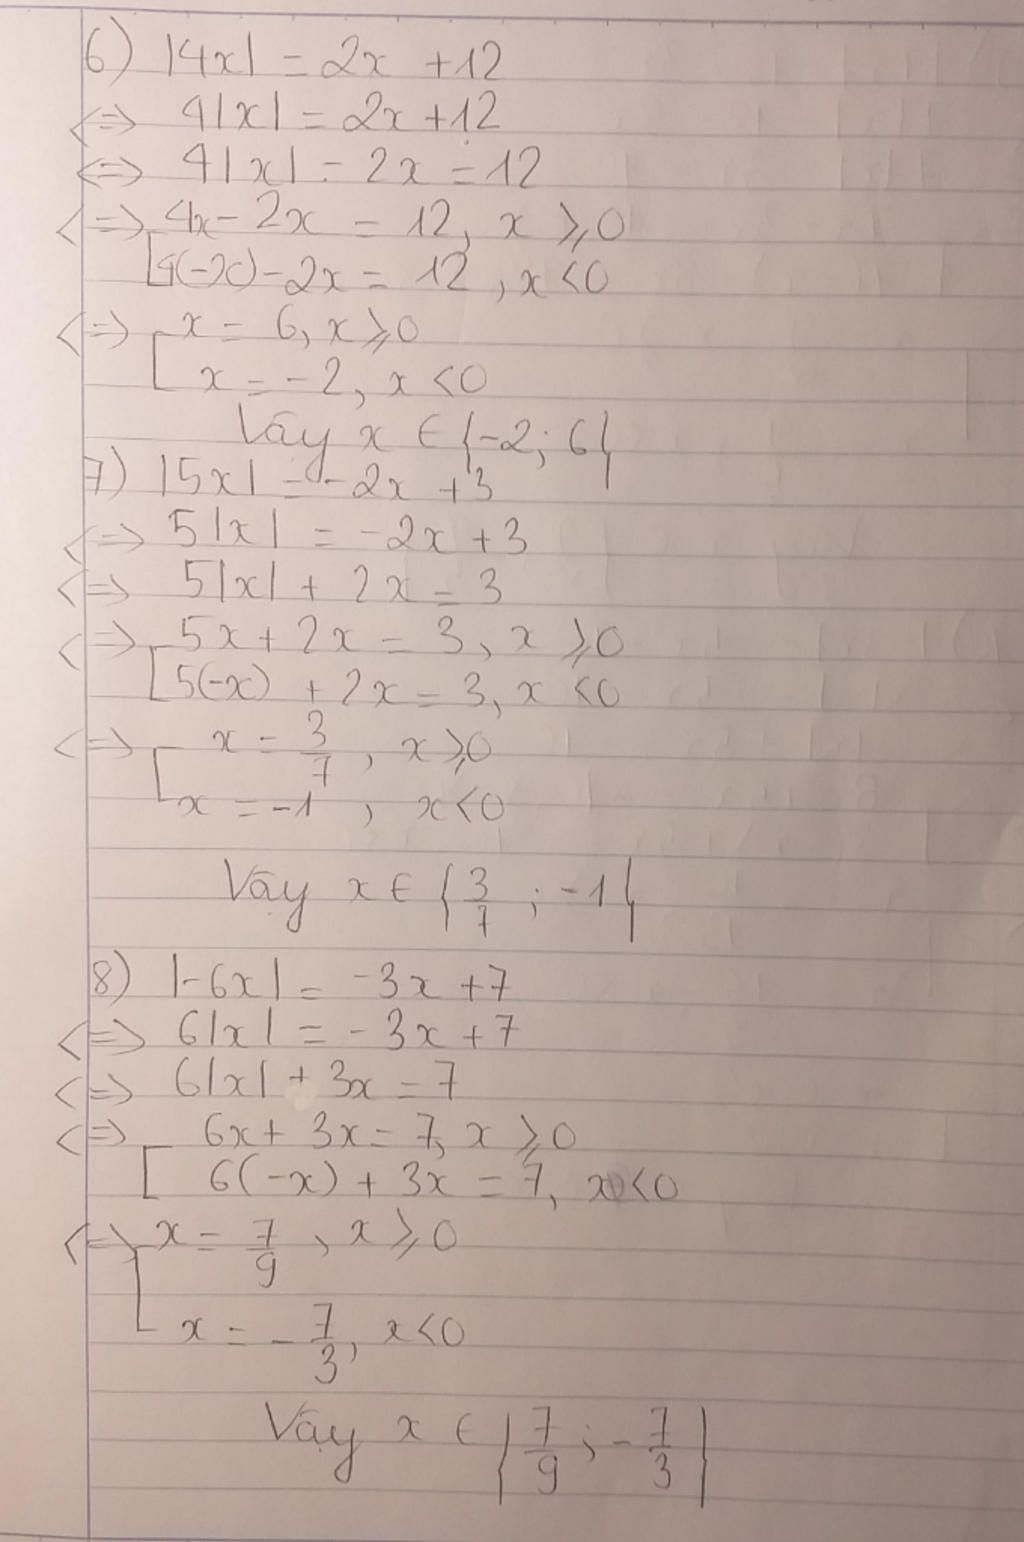 6) |4x| = 2x + 12
<=> 4|x| = 2x + 12
<=> 4|x| - 2x = 12
<=> [4x - 2x = 12, x ⩾ 0
4(-x) - 2x = 12, x < 0
<=> [x = 6, x ⩾ 0
x = -2, x < 0
Vậy x ∈ {-2; 6}
7) |5x| = -2x + 3
<=> 5|x| = -2x + 3
<=> 5|x| + 2x = 3
<=> [5x + 2x = 3, x ⩾ 0
5(-x) + 2x = 3, x < 0
<=> [x = 3/7, x ⩾ 0
x = -1, x < 0
Vậy x ∈ {3/7; -1}
8) |-6x| = -3x + 7
<=> 6|x| = -3x + 7
<=> 6|x| + 3x = 7
<=> [6x + 3x = 7, x ⩾ 0
6(-x) + 3x = 7, x < 0
<=> [x = 7/9, x ⩾ 0
x = -7/3, x < 0
Vậy x ∈ {7/9; -7/3}